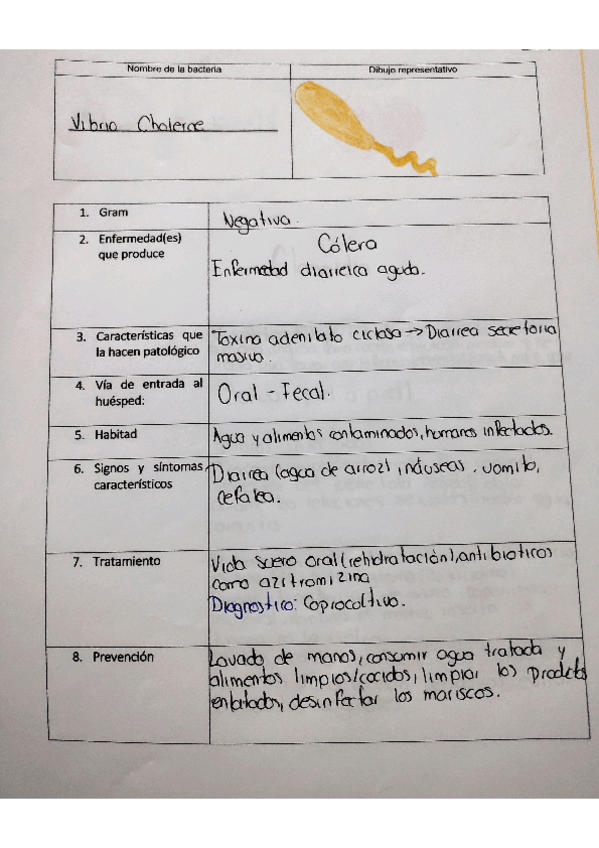 Nombre de la bacteria
Dibujo representativo
Vibrio Cholerae
1. Gram
Negativa.
2. Enfermedad(es)
que produce
Cólera
Enfermedad diarreica aguda.
3. Características que
la hacen patológico
Toxina adenilato ciclasa → Diarrea secretoria
masiva.
4. Vía de entrada al
huésped:
Oral - Fecal.
5. Habitad
Agua y alimentos contaminados, humanos infectados.
6. Signos y síntomas
característicos
Diarrea (agua de arroz), nduseas, vomito,
cefalea.
7. Tratamiento
Vida suero oral (rehidratación), antibioticos
como azitromizina
Diagnostico: Coprocoltivo.
8. Prevención
Lavado de manos, consumir agua tratada y
alimentos limpios/cocidos, limpiar los productos
enlatados, desinfectar los mariscos.